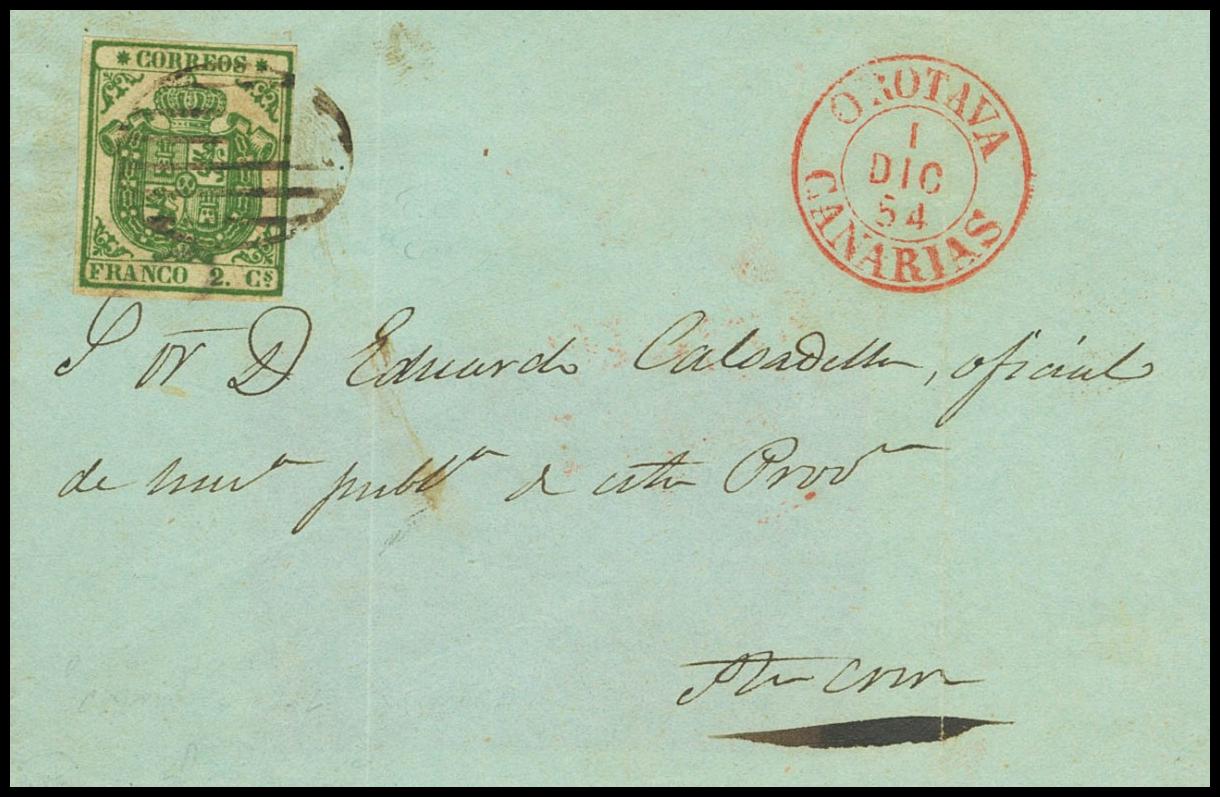 * CORREOS *
FRANCO 2. Cs
OROTAVA
1
DIC
54
CANARIAS
Sor D Eduardo Calzadilla, oficial
de publa de esta Prova
Sta Cruz